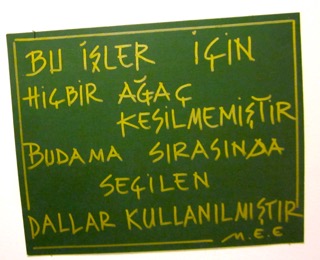 BU İŞLER İÇİN
HİÇBİR AĞAÇ
KESİLMEMİŞTİR
BUDAMA SIRASINDA
SEÇİLEN
DALLAR KULLANILMIŞTIR
M.E.E